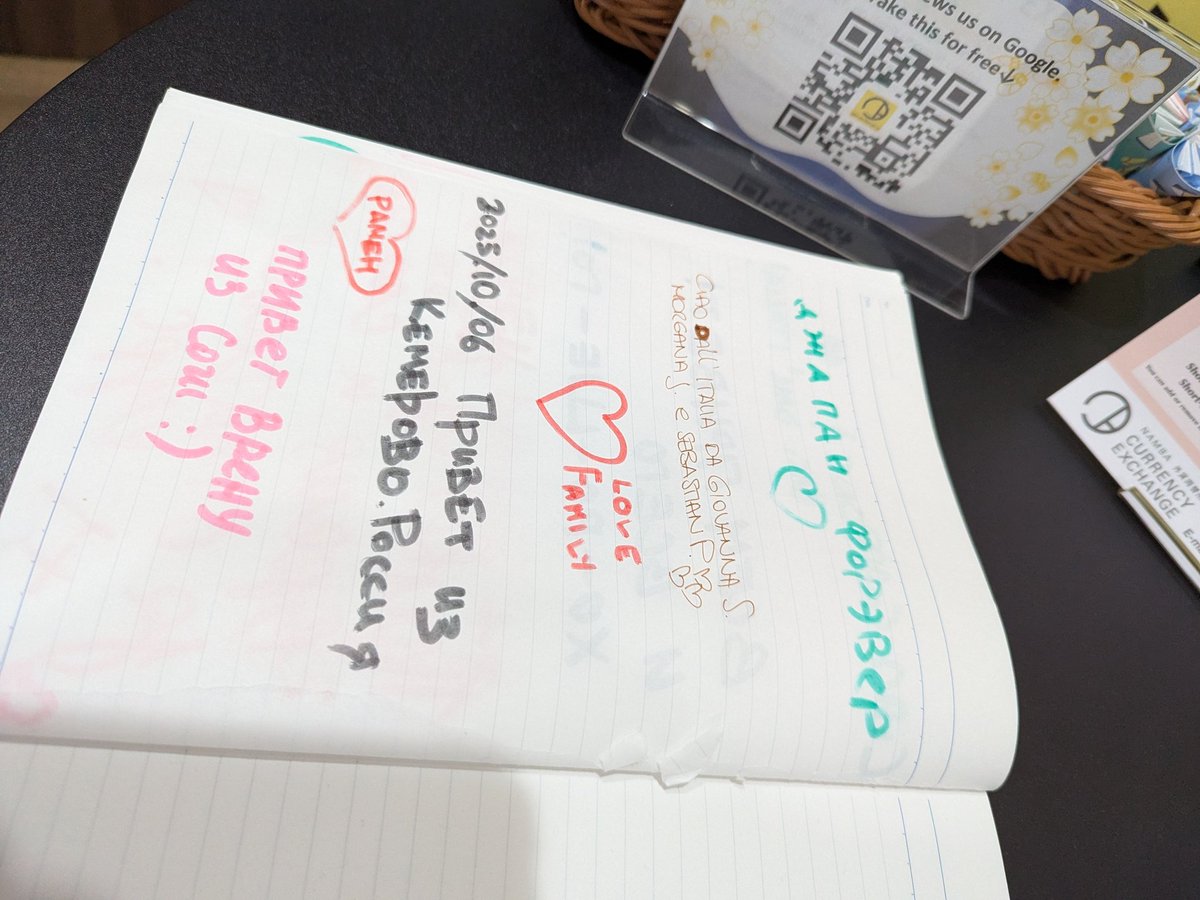 ews us on Google.
Take this for free↓
ДЖАПАН ФОРЭВЕР
CIAO DALL'ITALIA DA GIOVANNA S.
MORGANA J. E SEBASTIAN P.
LOVE
FAMILY
2025/10/06 ПРИВЕТ ИЗ
КЕМЕРОВО. РОССИЯ
РАМЕН
ПРИВЕТ ВРЕНУ
ИЗ СОЧИ :)
You can add or remo
NAMBA
CURRENCY
EXCHANGE